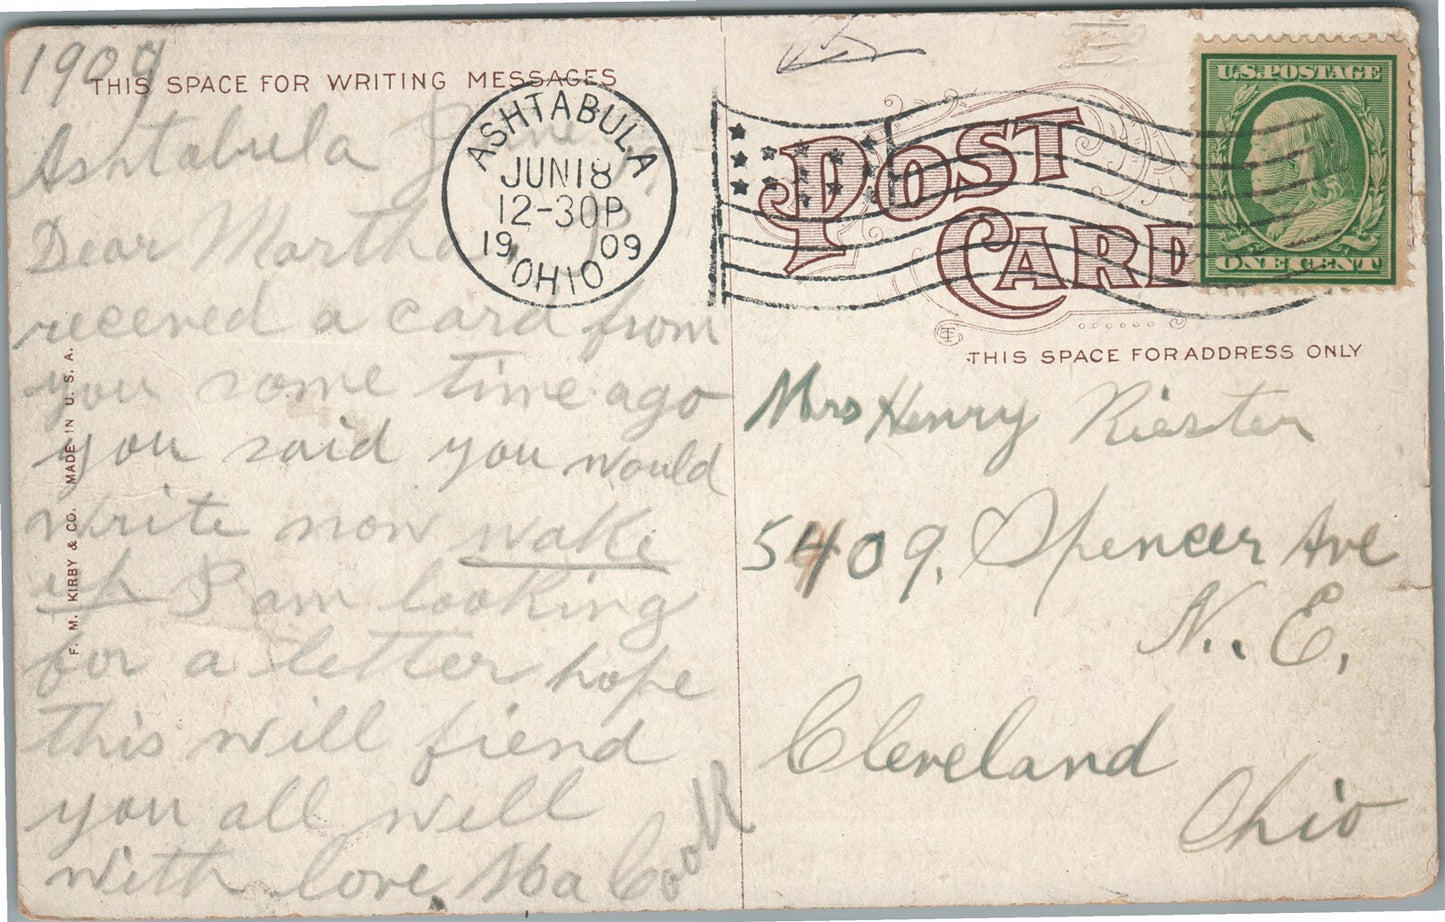 1909
THIS SPACE FOR WRITING MESSAGES
Ashtabula June
Dear Martha I
received a card from
you some time ago
you said you would
write now wake
up I am looking
for a letter hope
this will fiend
you all well
with love. Ma Cook
F. M. KIRBY & CO. MADE IN U. S. A.
ASHTABULA
JUN 18
12-30P
1909
OHIO
POST
CARD
U.S. POSTAGE
ONE CENT
THIS SPACE FOR ADDRESS ONLY
Mrs Henry Riester
5409. Spencer Ave
N. E.
Cleveland
Ohio